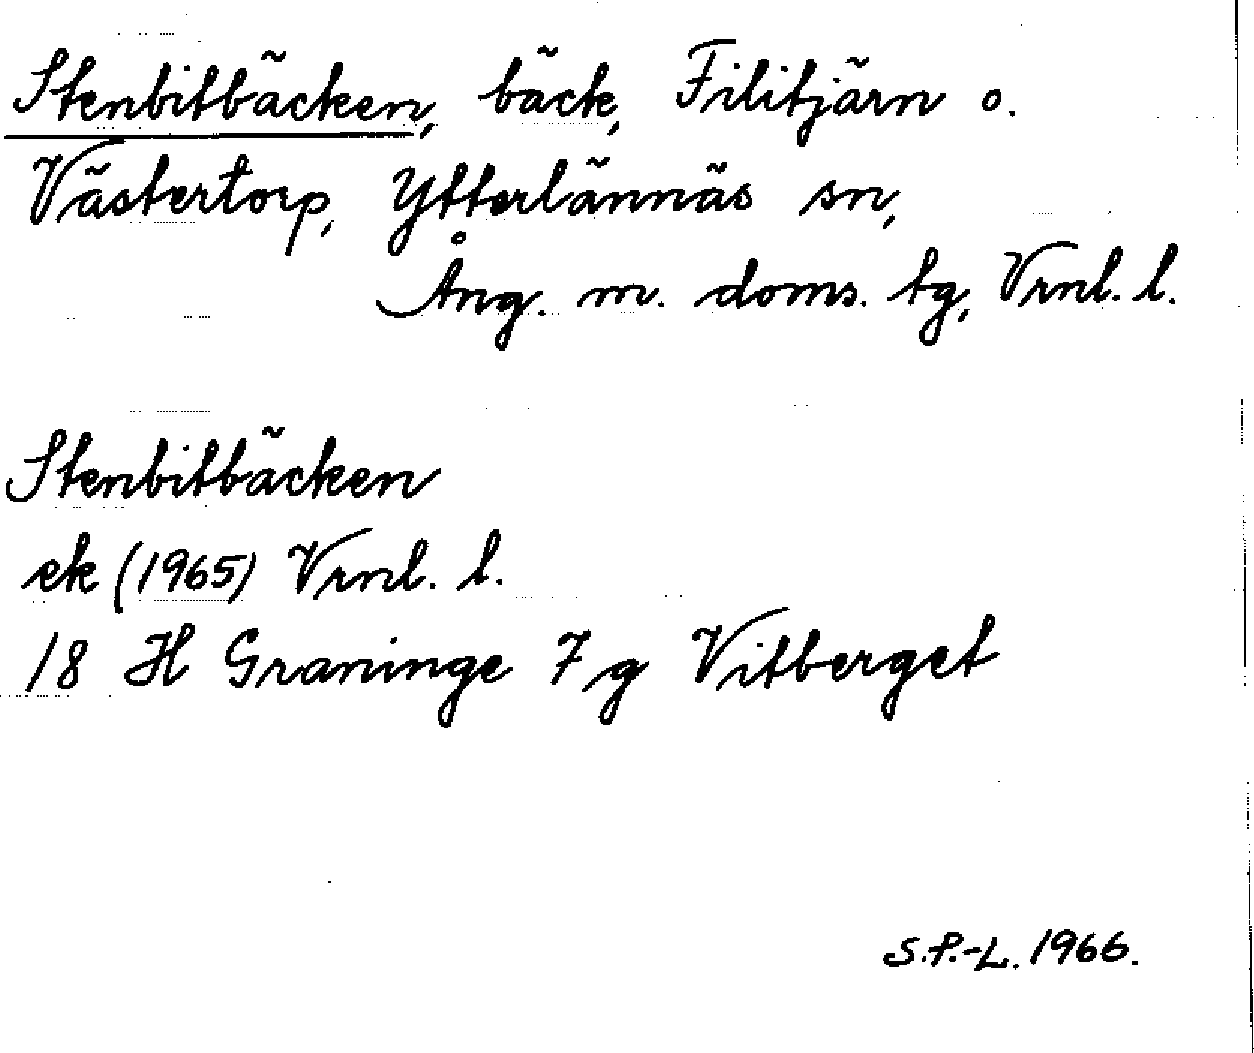 Stenbitbäcken, bäck, Filitjärn o.
Västertorp, Ytterlännäs sn,
Ång. m. doms. tg, Vrnl. l.
Stenbitbäcken
ek (1965) Vrnl. l.
18 H Graninge 7 g Vitberget
S.P.-L. 1966.